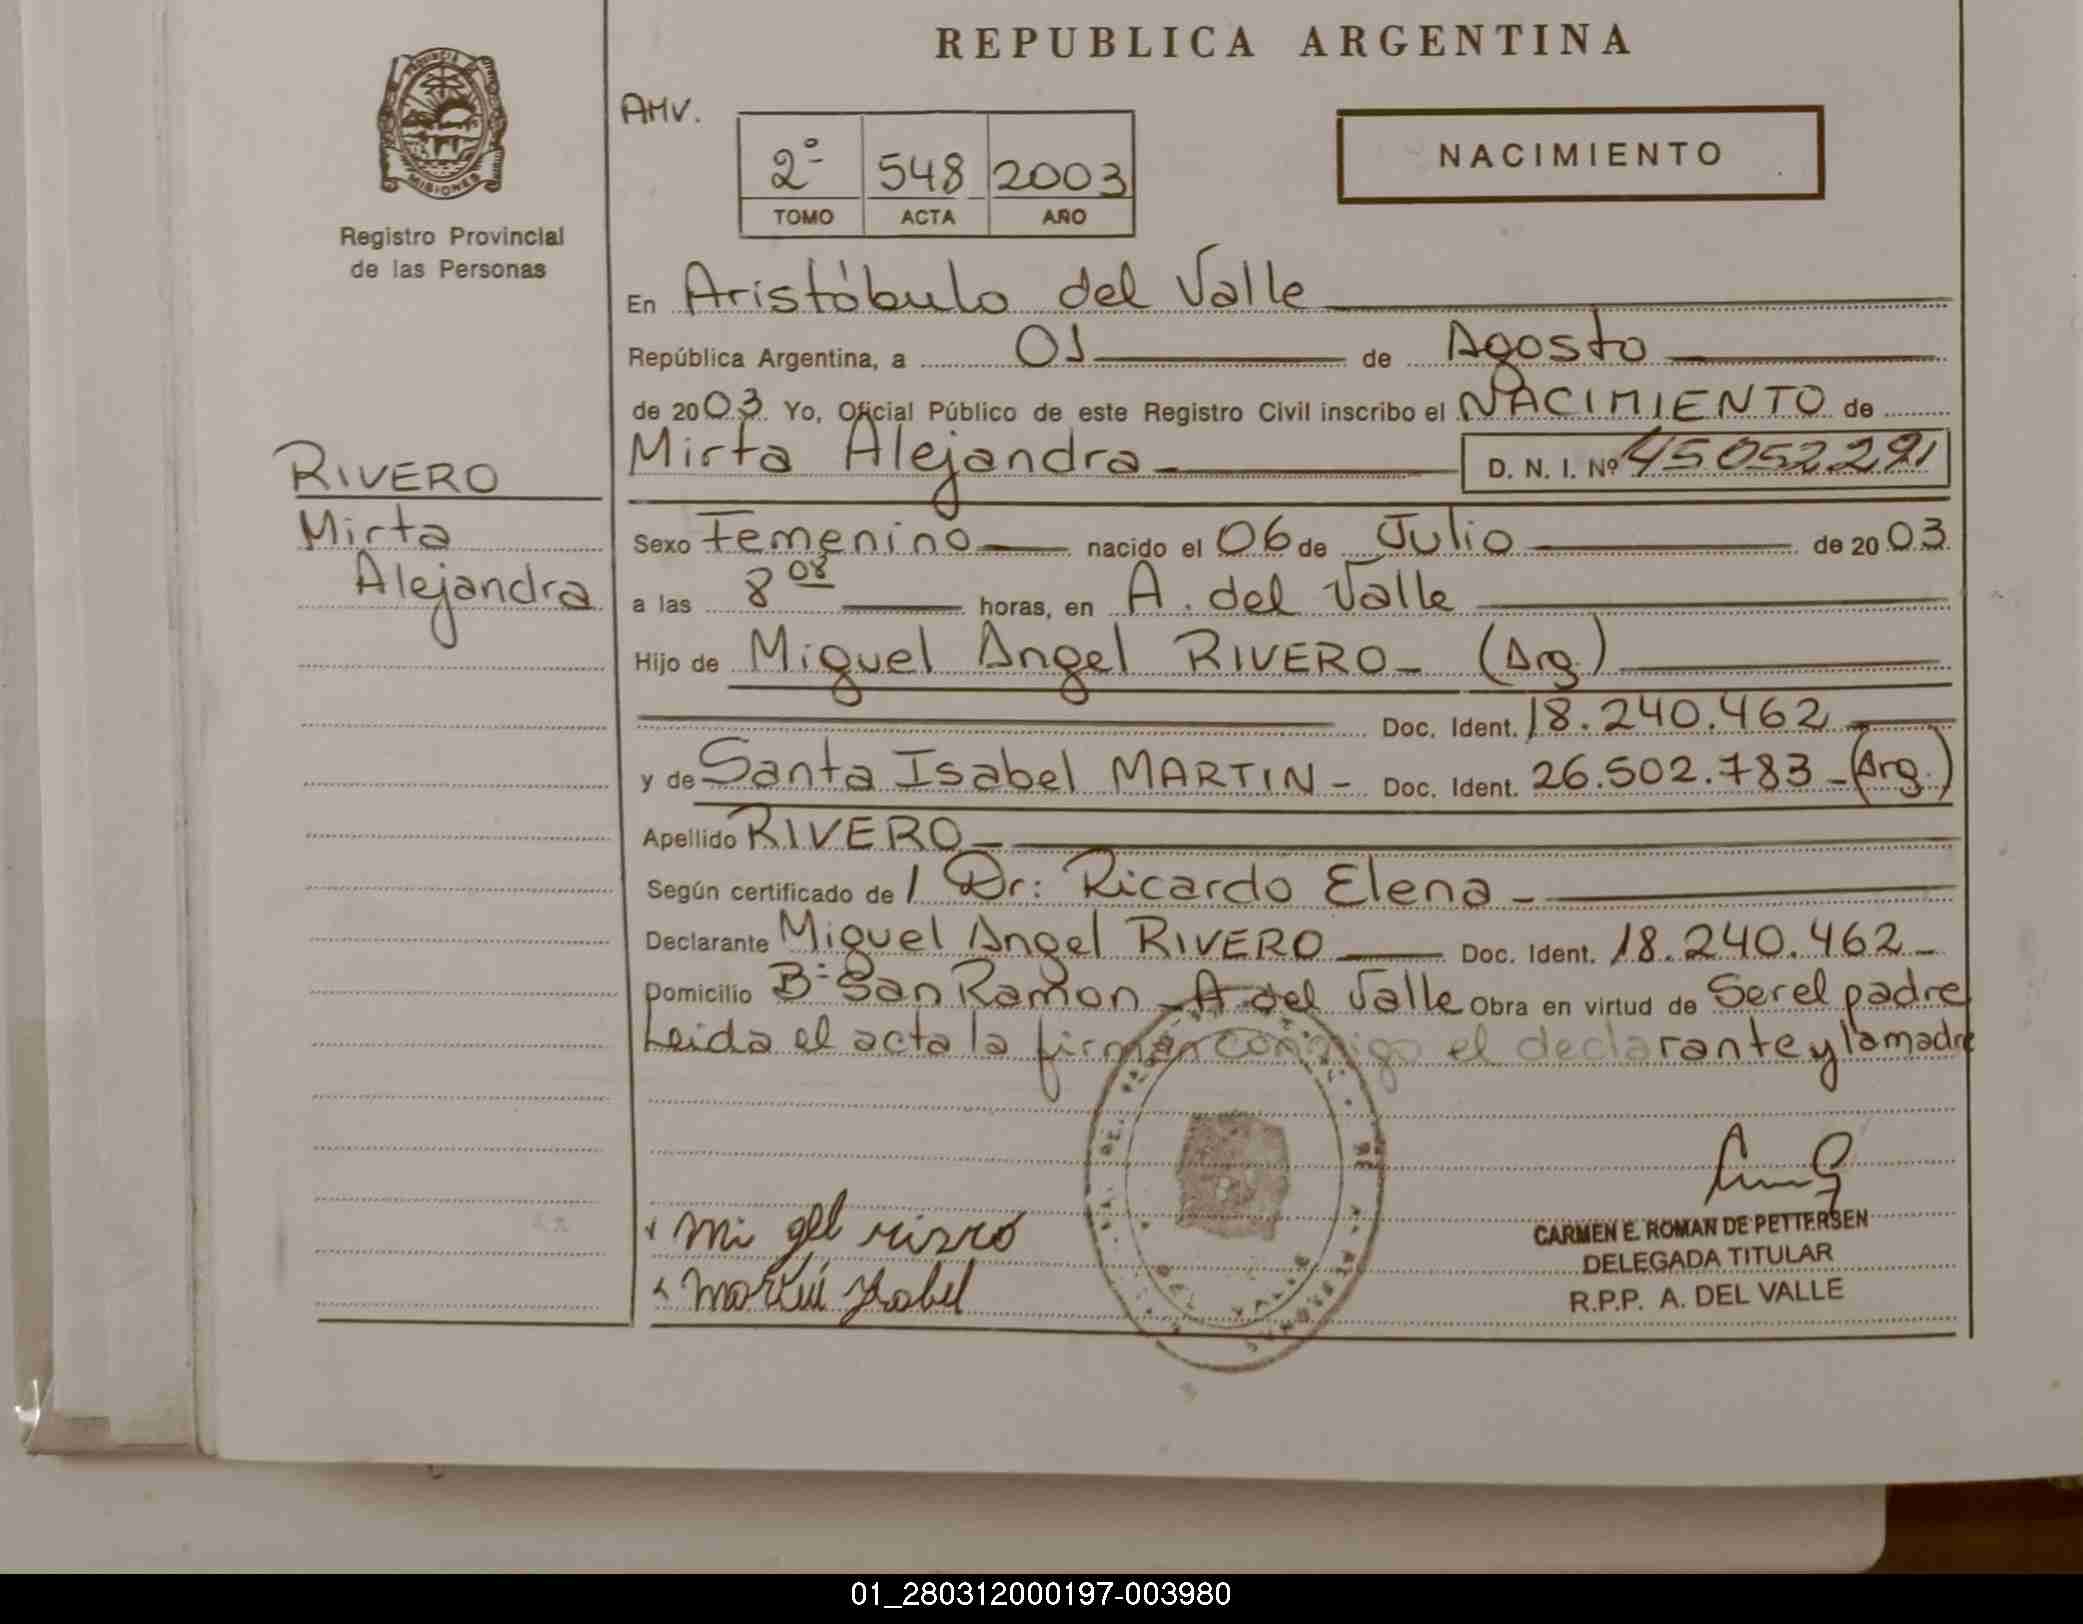 REPUBLICA ARGENTINA
PROVINCIA DE
MISIONES
Registro Provincial
de las Personas
AMV.
2º 548 2003
TOMO ACTA AÑO
NACIMIENTO
En Aristóbulo del Valle
República Argentina, a 01 de Agosto
de 2003 Yo, Oficial Público de este Registro Civil inscribo el NACIMIENTO de
Mirta Alejandra D. N. I. Nº 45052291
RIVERO
Mirta
Alejandra
Sexo Femenino nacido el 06 de Julio de 2003
a las 8 08 horas, en A. del Valle
Hijo de Miguel Angel RIVERO - (Arg.)
Doc. Ident. 18.240.462
y de Santa Isabel MARTIN - Doc. Ident. 26.502.783 - (Arg.)
Apellido RIVERO
Según certificado de / Dr: Ricardo Elena -
Declarante Miguel Angel RIVERO Doc. Ident. 18.240.462 -
Domicilio Bº San Ramon - A del Valle Obra en virtud de Ser el padre
Leida el acta la firman conmigo el declarante y la madre
CARMEN E. ROMAN DE PETTERSEN
DELEGADA TITULAR
R.P.P. A. DEL VALLE
01_280312000197-003980